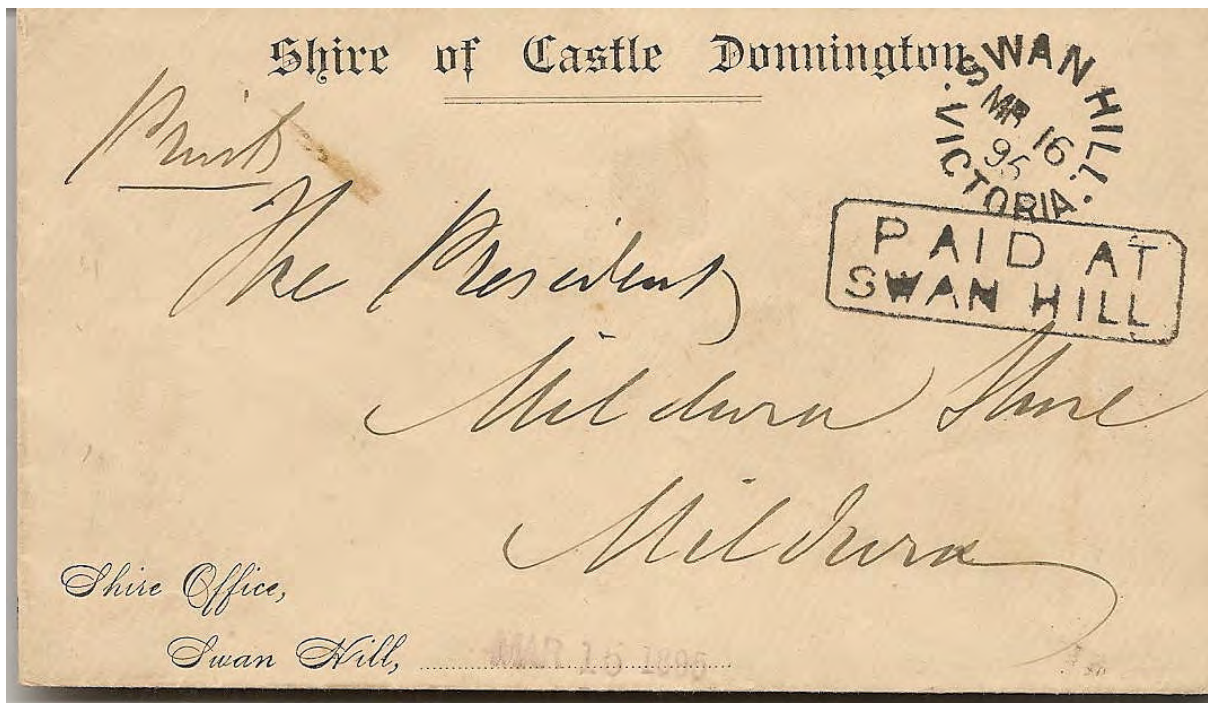 Shire of Castle Donnington
SWAN HILL
MR 16
95
VICTORIA
PAID AT
SWAN HILL
The President
Mildura Shire
Mildura
Shire Office,
Swan Hill,
15 1895